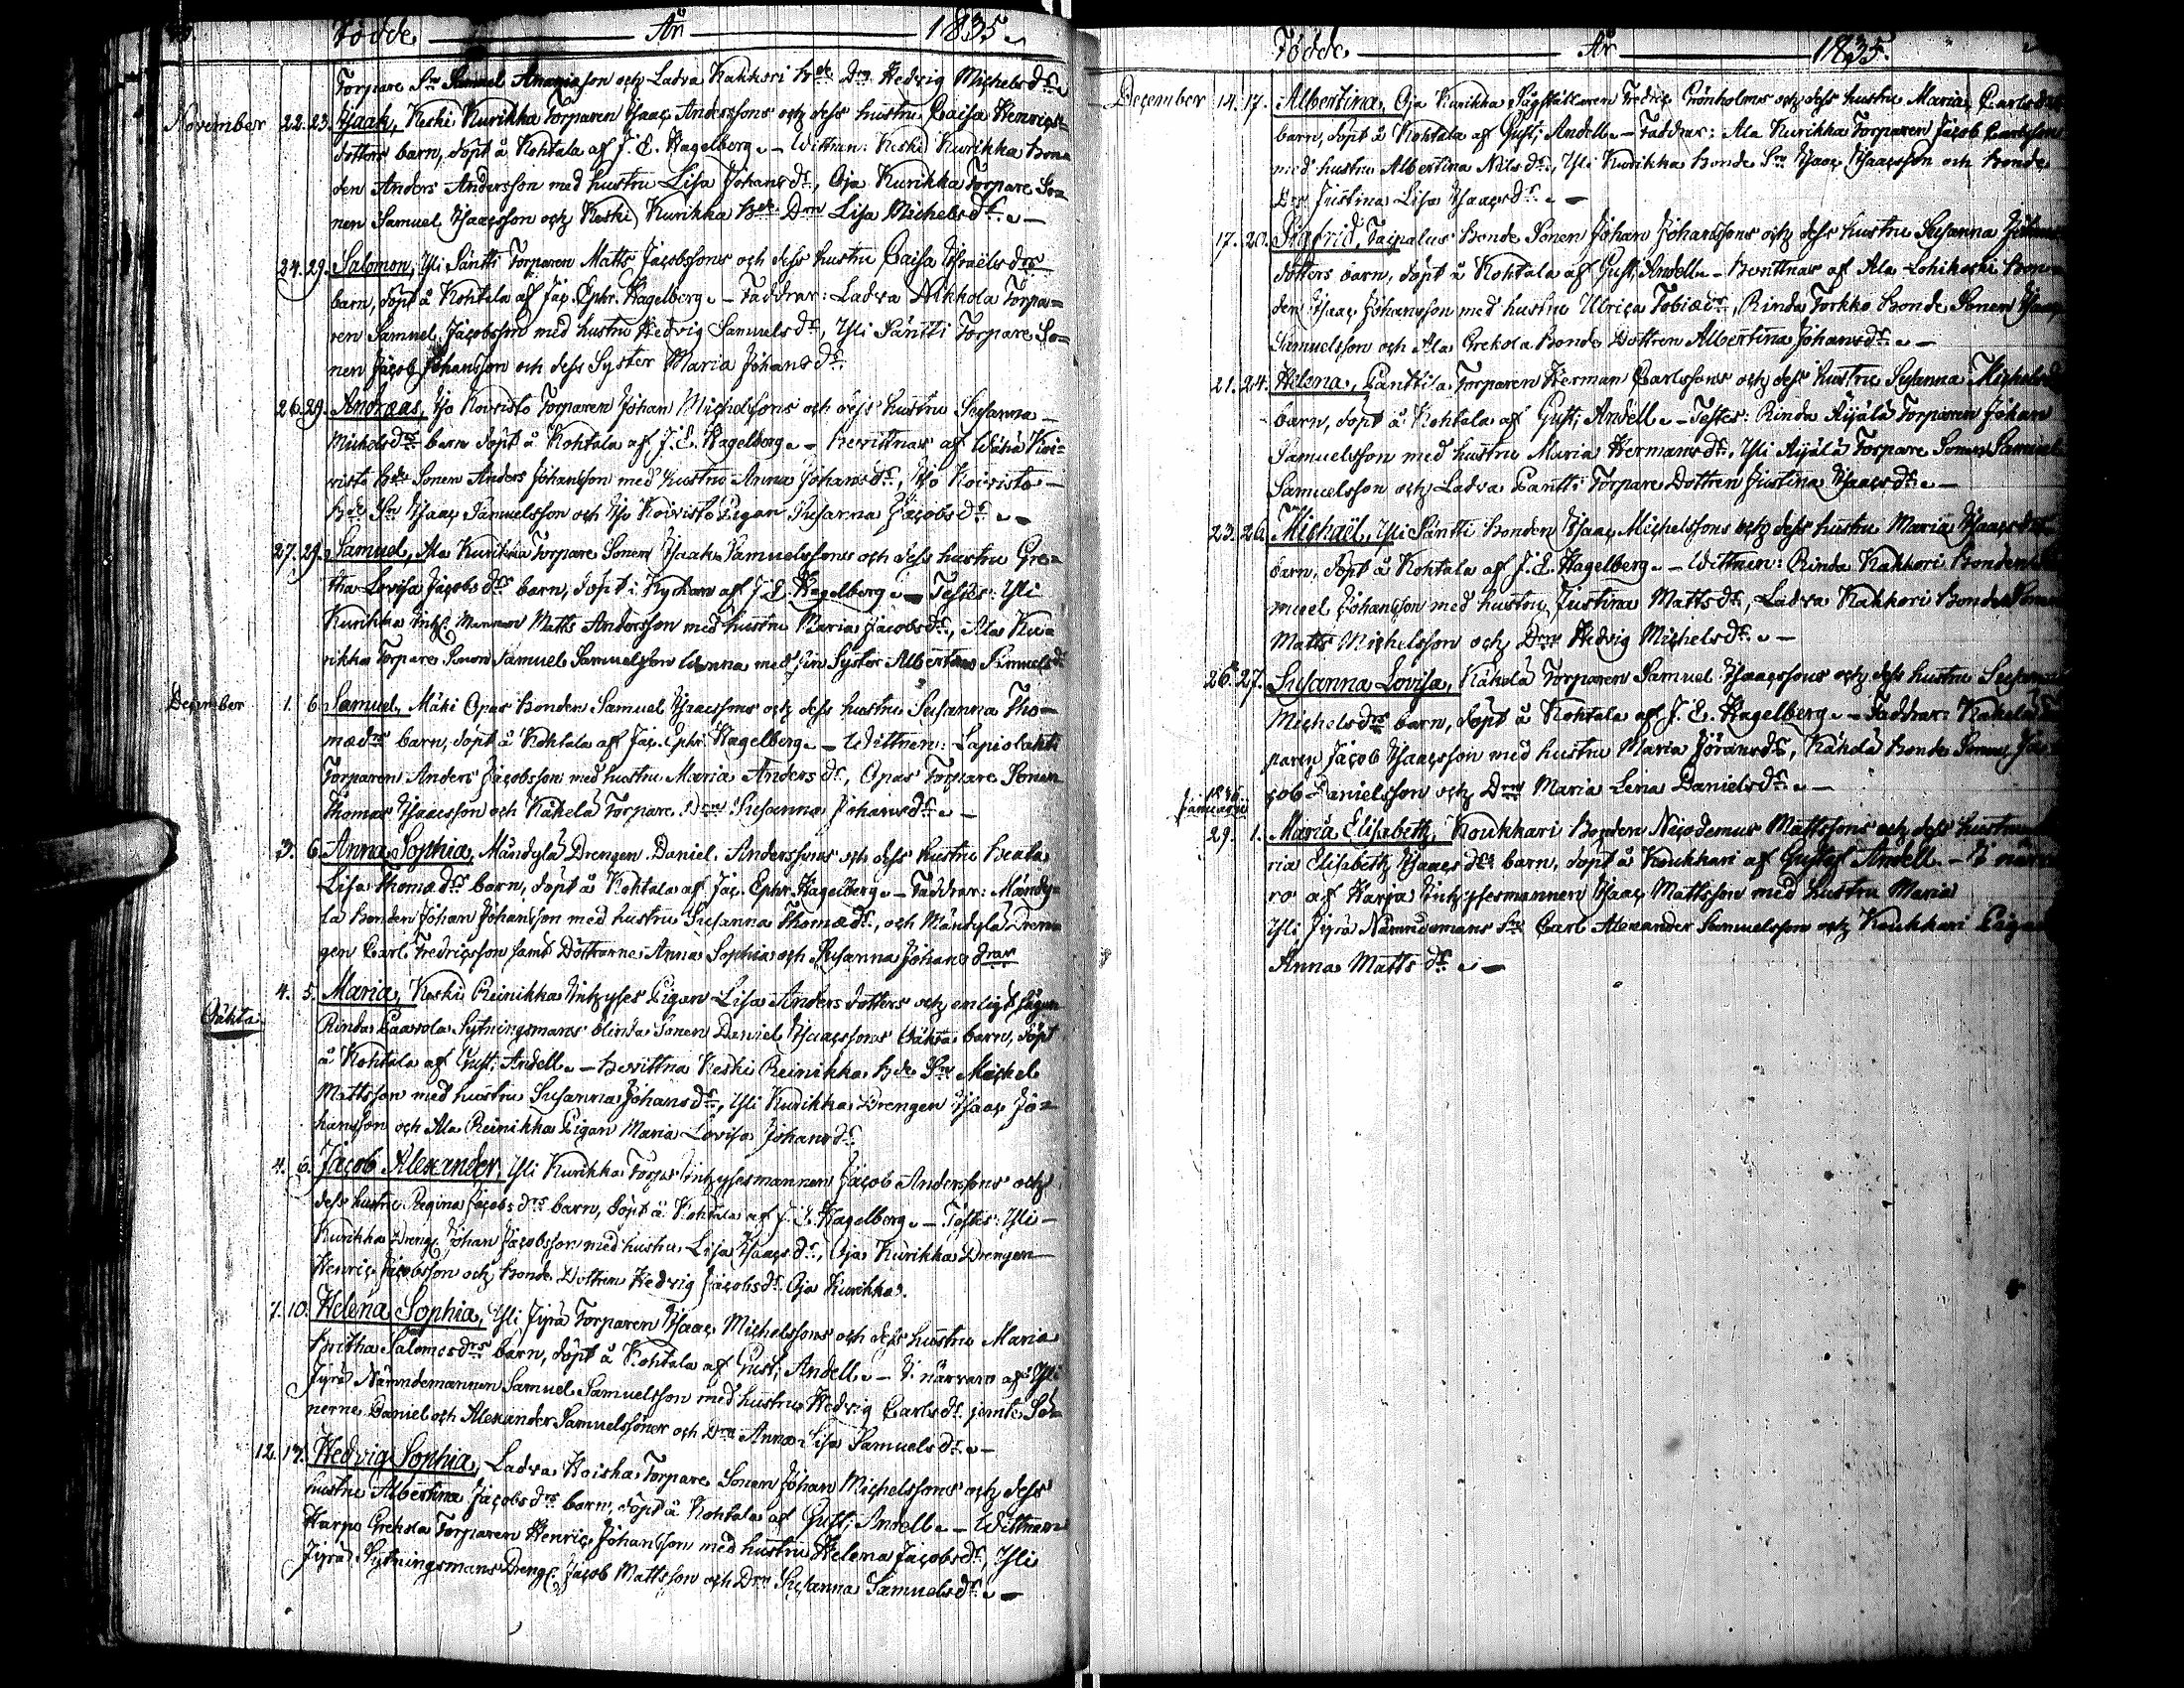 Födde År 1835
Torpare Sn Samuel Ananiasson och Ladva Kakkori Bde Drn Hedvig Michelsdr
November 22. 23. Isaak, Keski Kurikka Torparen Isaac Anderssons och dess hustru Caisa Henrics=
dotters barn, döpt å Kohtala af J. E. Hagelberg. – Wittnen: Keski Kurikka Bon=
den Anders Andersson med hustru Lisa Johansdr, Oja Kurikka Torpare So=
nen Samuel Isaacsson och Keski Kurikka Bde Drn Lisa Michelsdr. –
24. 29. Salomon, Yli Säntti Torparen Matts Jacobssons och dess hustru Caisa Israelsdrs
barn, döpt å Kohtala af Jac. Ephr. Hagelberg. – Faddrar: Ladva Nikkola Torpa=
ren Samuel Jacobsson med hustru Hedvig Samuelsdr, Yli Säntti Torpare So=
nen Jacob Johansson och dess Syster Maria Johansdr
26. 29. Andreas, Iso Koivisto Torparen Johan Michelssons och dess hustru Susanna
Michelsdrs barn döpt å Kohtala af J. E. Hagelberg. – Bevittnas af Wähä Koi=
visto Bde Sonen Anders Johansson med hustru Anna Johansdr, Iso Koivisto –
Bde Sn Isaac Samuelsson och Iso Koivisto Pigan Susanna Jacobsdr. –
27. 29. Samuel, Ala Kurikka Torpare Sonen Isaak Samuelssons och dess hustru Gre=
tha Lovisa Jacobsdrs barn, döpt i Kyrkan af J. E. Hagelberg. – Testes: Yli
Kurikka Inh. Mannen Matts Andersson med hustru Maria Jacobsdr, Ala Ku=
rikka Torpare Sonen Samuel Samuelsson med sin Syster Albertina Samuelsdr
December 1. 6. Samuel, Mäki Opas Bonden Samuel Isaacssons och dess hustru Susanna Tho=
mædrs barn, döpt å Kohtala af Jac. Ephr. Hagelberg. – Wittnen: Lapiolahti
Torparen Anders Jacobsson med hustru Maria Andersdr, Opas Torpare Sonen
Thomas Isaacsson och Kähelä Torpare Drn Susanna Johansdr. –
3. 6. Anna Sophia, Mändylä Drengen Daniel Anderssons och dess hustru Beata
Lisa Thomædrs barn, döpt å Kohtala af Jac. Ephr. Hagelberg. – Faddrar: Mändy=
lä Bonden Johan Johansson med hustru Susanna Thomædr, och Mändylä Dren=
gen Carl Fredricsson samt Döttrarne Anna Sophia och Susanna Johans drar
4. 5. Maria, Keski Reinikka Inhyses Pigan Lisa Anders dotters och enligt
Oäkta. Rinda Paavola Sytningsmans blinda Sonen Daniel Isaacssons Oäkta barn, döpt
å Kohtala af Gust. Andell. – Bevittna Keski Reinikka Bde Sn Michel
Mattsson med hustru Susanna Johansdr, Yli Kurikka Drengen Isaac Jo=
hansson och Ala Reinikka Pigan Maria Lovisa Johansdr.
4. 6. Jacob Alexander, Yli Kurikka Torps Inhysesmannen Jacob Anderssons och
dess hustru Regina Jacobsdrs barn, döpt å Kohtala af J. E. Hagelberg. – Testes: Yli –
Kurikka Dreng. Johan Jacobsson med hustru Lisa Isaacsdr, Oja Kurikka Drengen
Henric Jacobsson och Bonde Dottren Hedvig Jacobsdr Oja Kurikka.
7. 10. Helena Sophia, Yli Jyrä Torparen Isaac Michelssons och dess hustru Maria
Salomosdrs barn, döpt å Kohtala af Gust. Andell. – I närvaro af Yli
Jyrä Nämndemannen Samuel Samuelsson med hustru Hedvig Carlsdr jemte Sö=
nerne Daniel och Alexander Samuelssöner och Drn Anna Lisa Samuelsdr. –
12. 13. Hedvig Sophia, Ladva Koiska Torpare Sonen Johan Michelssons och dess
hustru Albertina Jacobsdrs barn, döpt å Kohtala af Gust. Andell. – Wittnen
Harpo Grekola Torparen Henric Johansson med hustru Helena Jacobsdr, Yli
Jyrä Sytningsmans Dreng. Jacob Mattsson och Drn Susanna Samuelsdr. –
Födde År 1835.
December 14. 17. Albertina, Oja Kurikka Sågställaren Fredric Grönholms och dess hustru Maria Carlsdrs
barn, döpt å Kohtala af Gust. Andell. – Faddrar: Ala Kurikka Torparen Jacob Carlsson
med hustru Albertina Nilsdr, Yli Kurikka Bonde Sn Isaac Isaacsson och Bonde
Drn Justina Lisa Isaacsdr. –
17. 20. Sigfrid, Taipalus Bonde Sonen Johan Johanssons och dess hustru Susanna
dotters barn, döpt å Kohtala af Gust. Andell. – Bevittnas af Ala Lohikoski Bon=
den Isaac Johansson med hustru Ulrica Tobiædr, Rinda Torkko Bonde Sonen Isaac
Samuelsson och Ala Grekola Bonde Dottren Albertina Johansdr. –
21. 24. Helena, Panttila Torparen Herman Carlssons och dess hustru Susanna Michelsdrs
barn, döpt å Kohtala af Gust. Andell. – Testes: Rinda Äijälä Torparen Johan
Samuelsson med hustru Maria Hermansdr, Yli Äijälä Torpare Sonen Samuel
Samuelsson och Ladva Pantti Torpare Dottren Justina Isaacsdr. –
23. 26. Michaël, Yli Säntti Bonden Isaac Michelssons och dess hustru Maria Isaacsdrs
barn, döpt å Kohtala af J. E. Hagelberg. – Wittnen: Rinda Kakkori Bonden
muel Johansson med hustru Justina Mattsdr, Ladva Kakkori Bonde Sonen
Matts Michelsson och Drn Hedvig Michelsdr. –
26. 27. Susanna Lovisa, Kähelä Torparen Samuel Isaacssons och dess hustru Susanna
Michelsdrs barn, döpt å Kohtala af J. E. Hagelberg. – Faddrar: Kähelä
paren Jacob Isaacsson med hustru Maria Göransdr, Kähelä Bonde Sonen Ja
cob Danielsson och Drn Maria Lena Danielsdr. –
1836
Januarii
29. 1. Maria Elisabeth, Koukkari Bonden Nicodemus Mattssons och dess hustru
ria Elisabeth Isaacsdrs barn, döpt å Koukkari af Gustaf Andell. – I närva
ro af Harja Inhysesmannen Isaac Mattsson med hustru Maria
Yli Jyrä Nämndemans Sn Carl Alexander Samuelsson och Koukkari Pigan
Anna Mattsdr. –